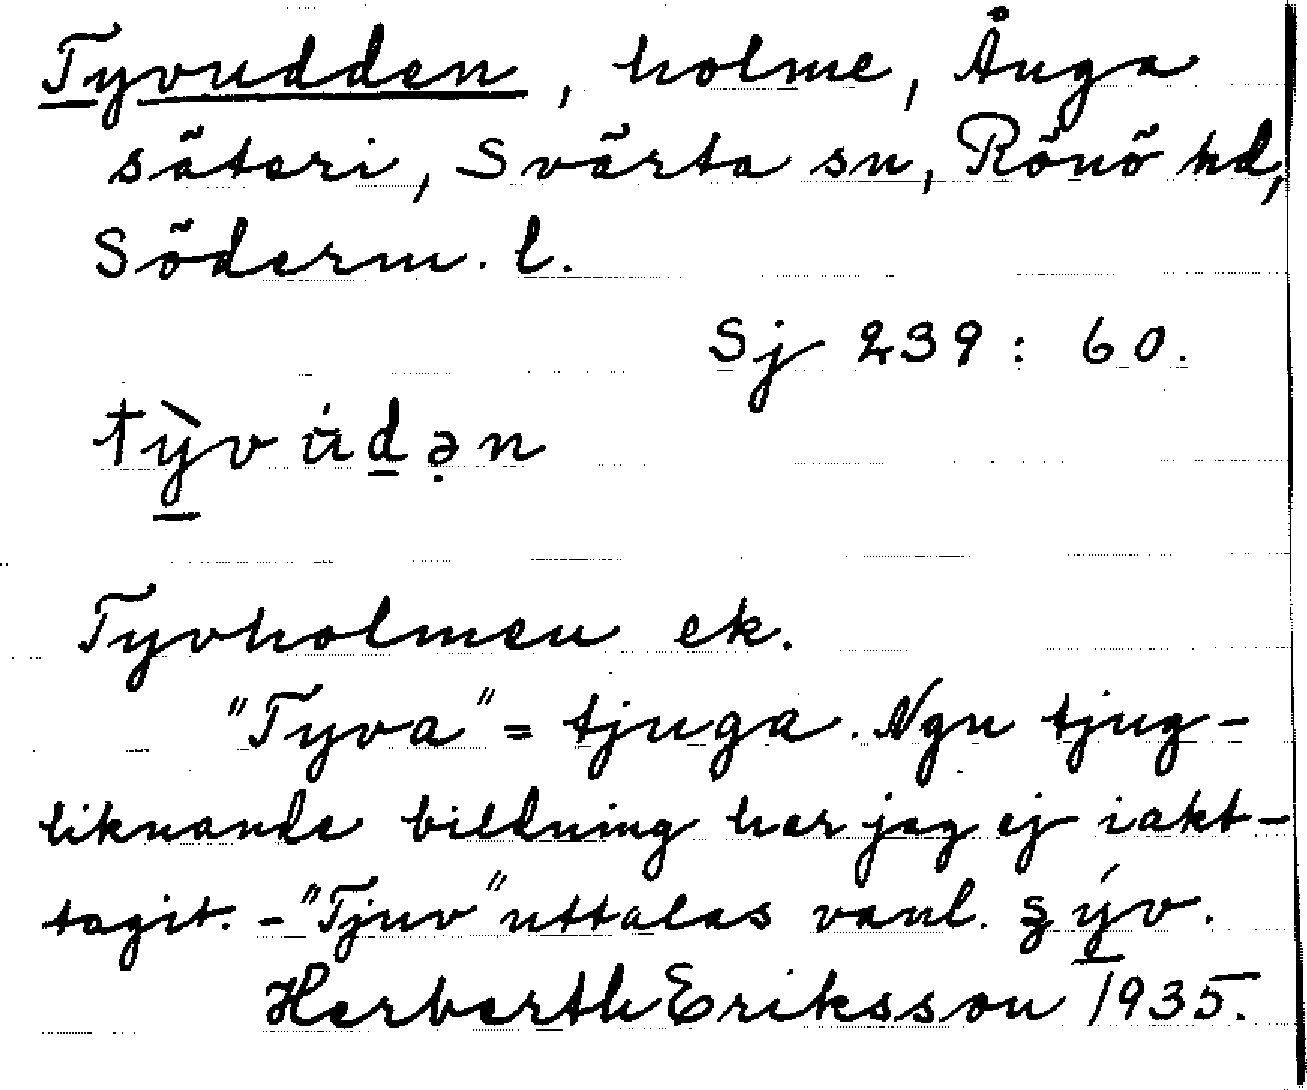 Tyvudden, holme, Ånga
säteri, Svärta sn, Rönö hd,
Söderm. l.
Sj 239 : 60.
tỳ̠vúd̠ə̣n
Tyvholmen ek.
"Tyva" = tjuga. Ngn tjug-
liknande bildning har jag ej iakt-
tagit. - "Tjuv" uttalas vanl. ʂý̠v.
Herbarth Eriksson 1935.